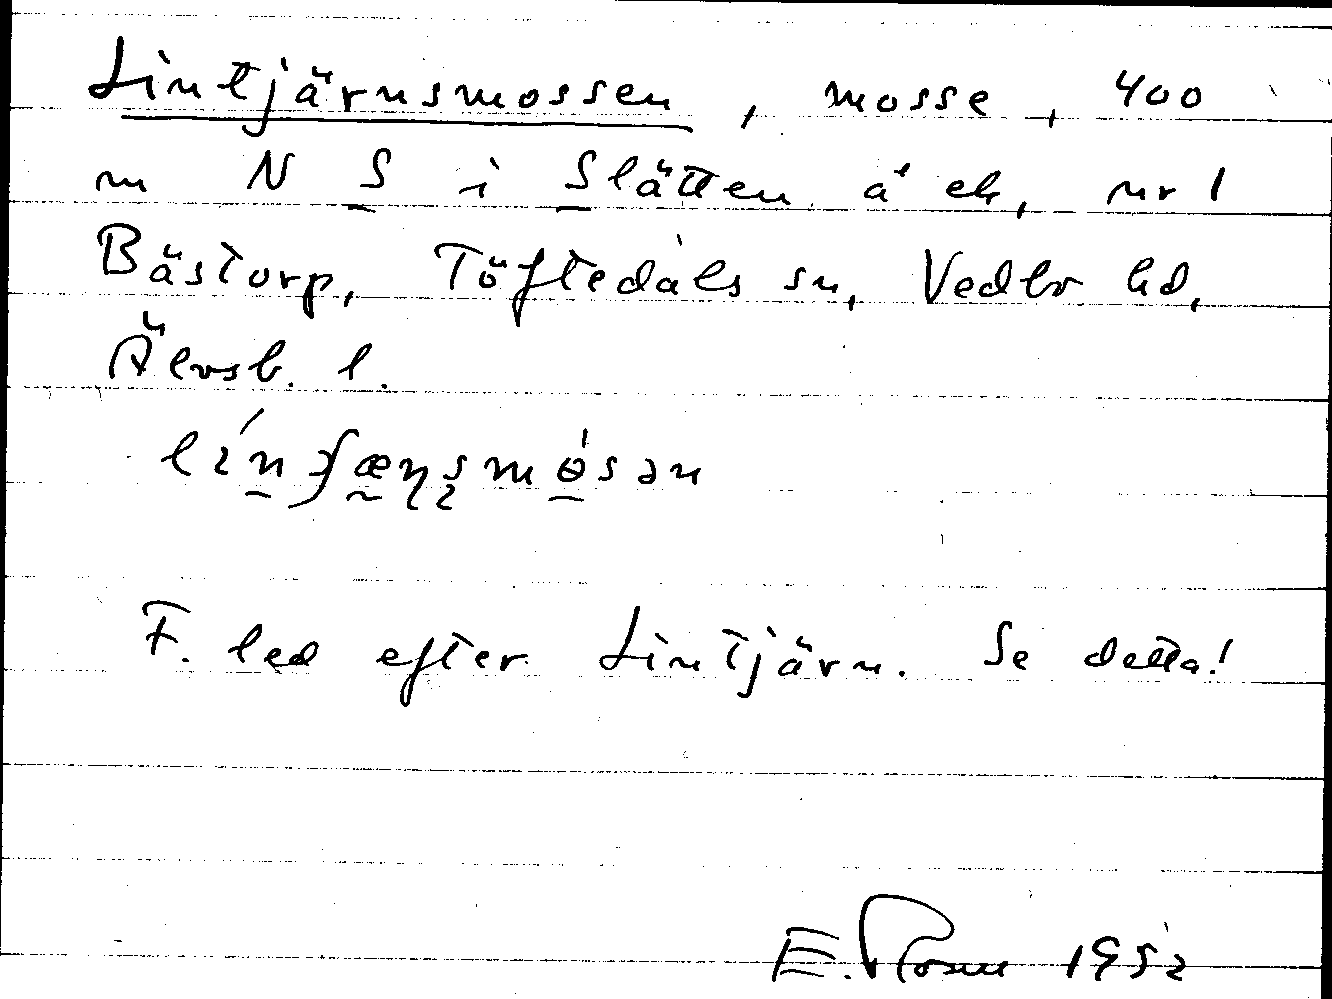 Lintjärnsmossen, mosse, 400
m N S i Slätten å ek, nr 1
Bästorp, Töftedals sn, Vedbo hd,
Älvsb. l.
F. led efter Lintjärn. Se detta!
E. 1952